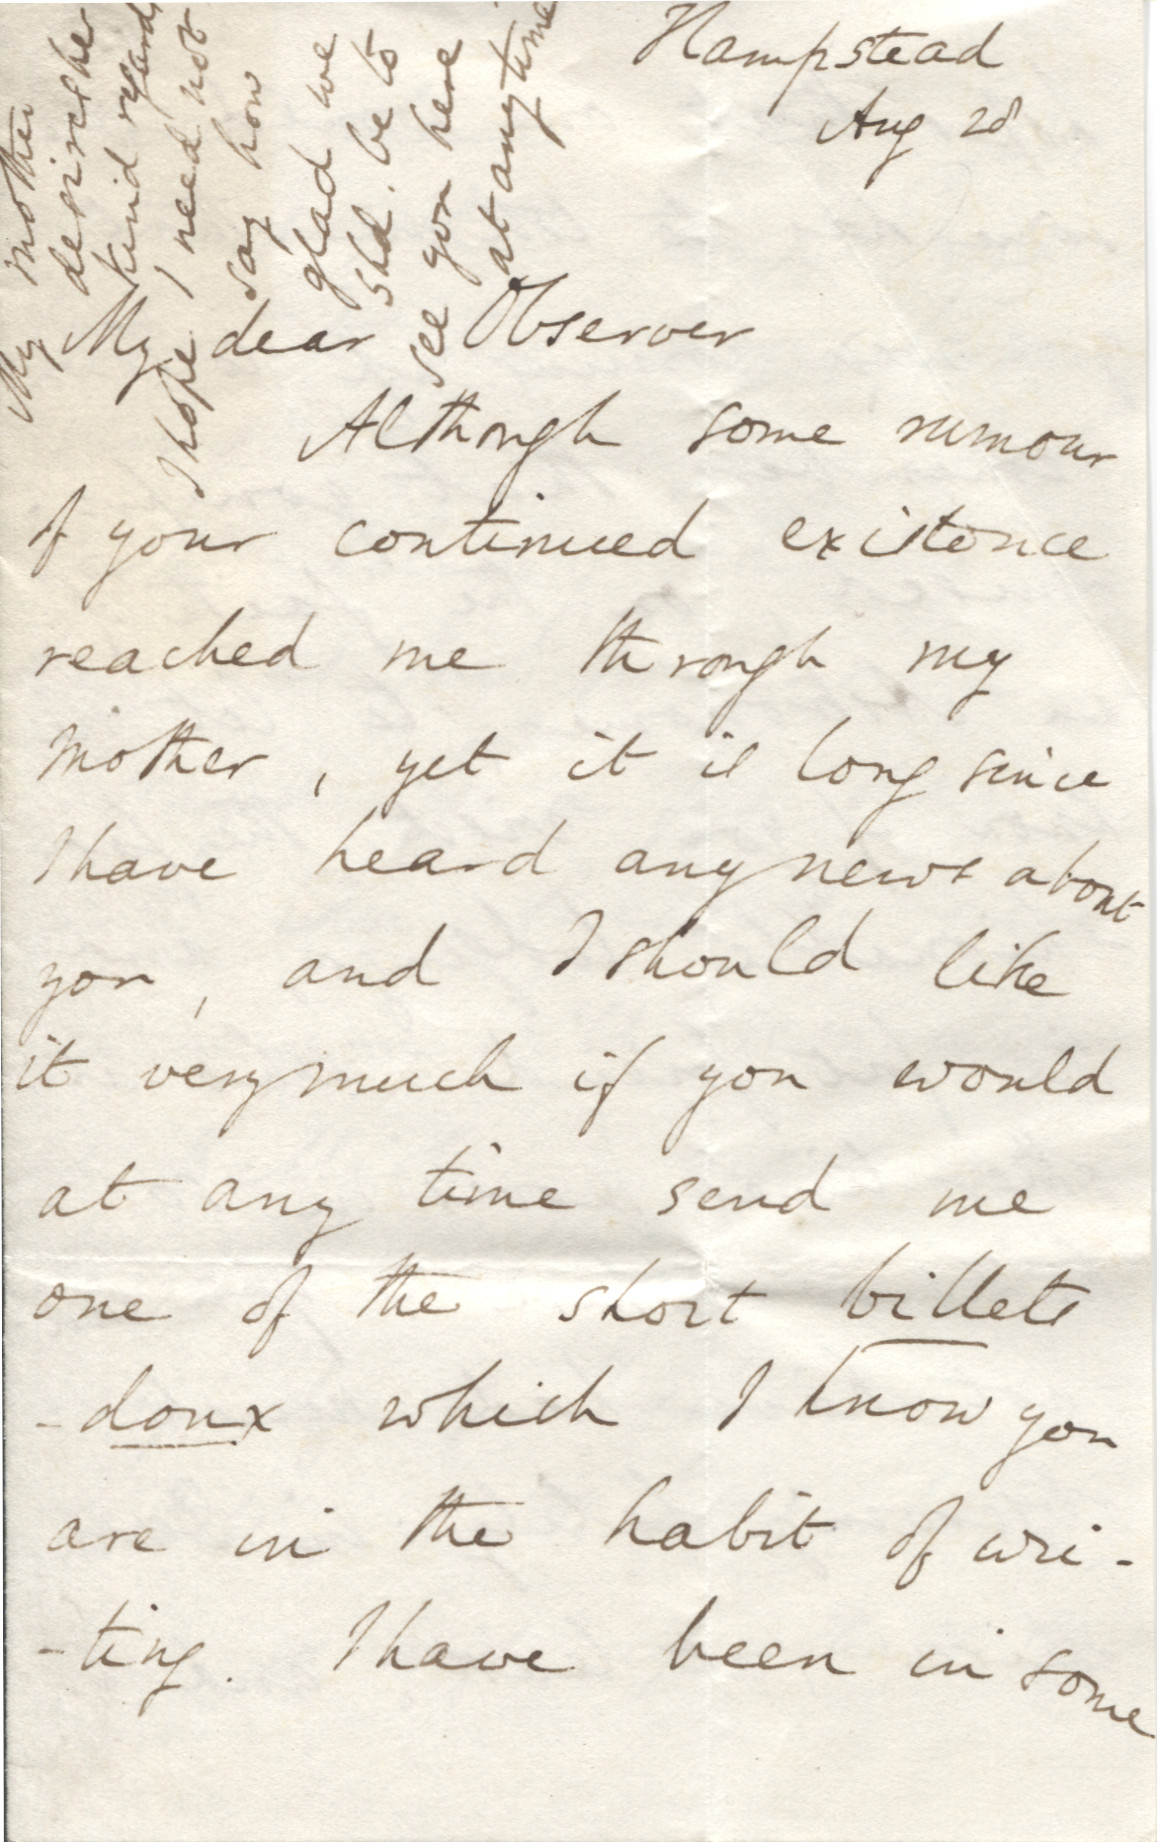 Hampstead
Aug 28
My dear Observer
Although some rumour
of your continued existence
reached me through my
mother, yet it is long since
I have heard any news about
you, and I should like
it very much if you would
at any time send me
one of the short billets
-doux which I know you
are in the habit of wri-
-ting. I have been in some
My mother
desires her
kind regards
I hope I need not
say how
glad we
shd. be to
see you here
at any time